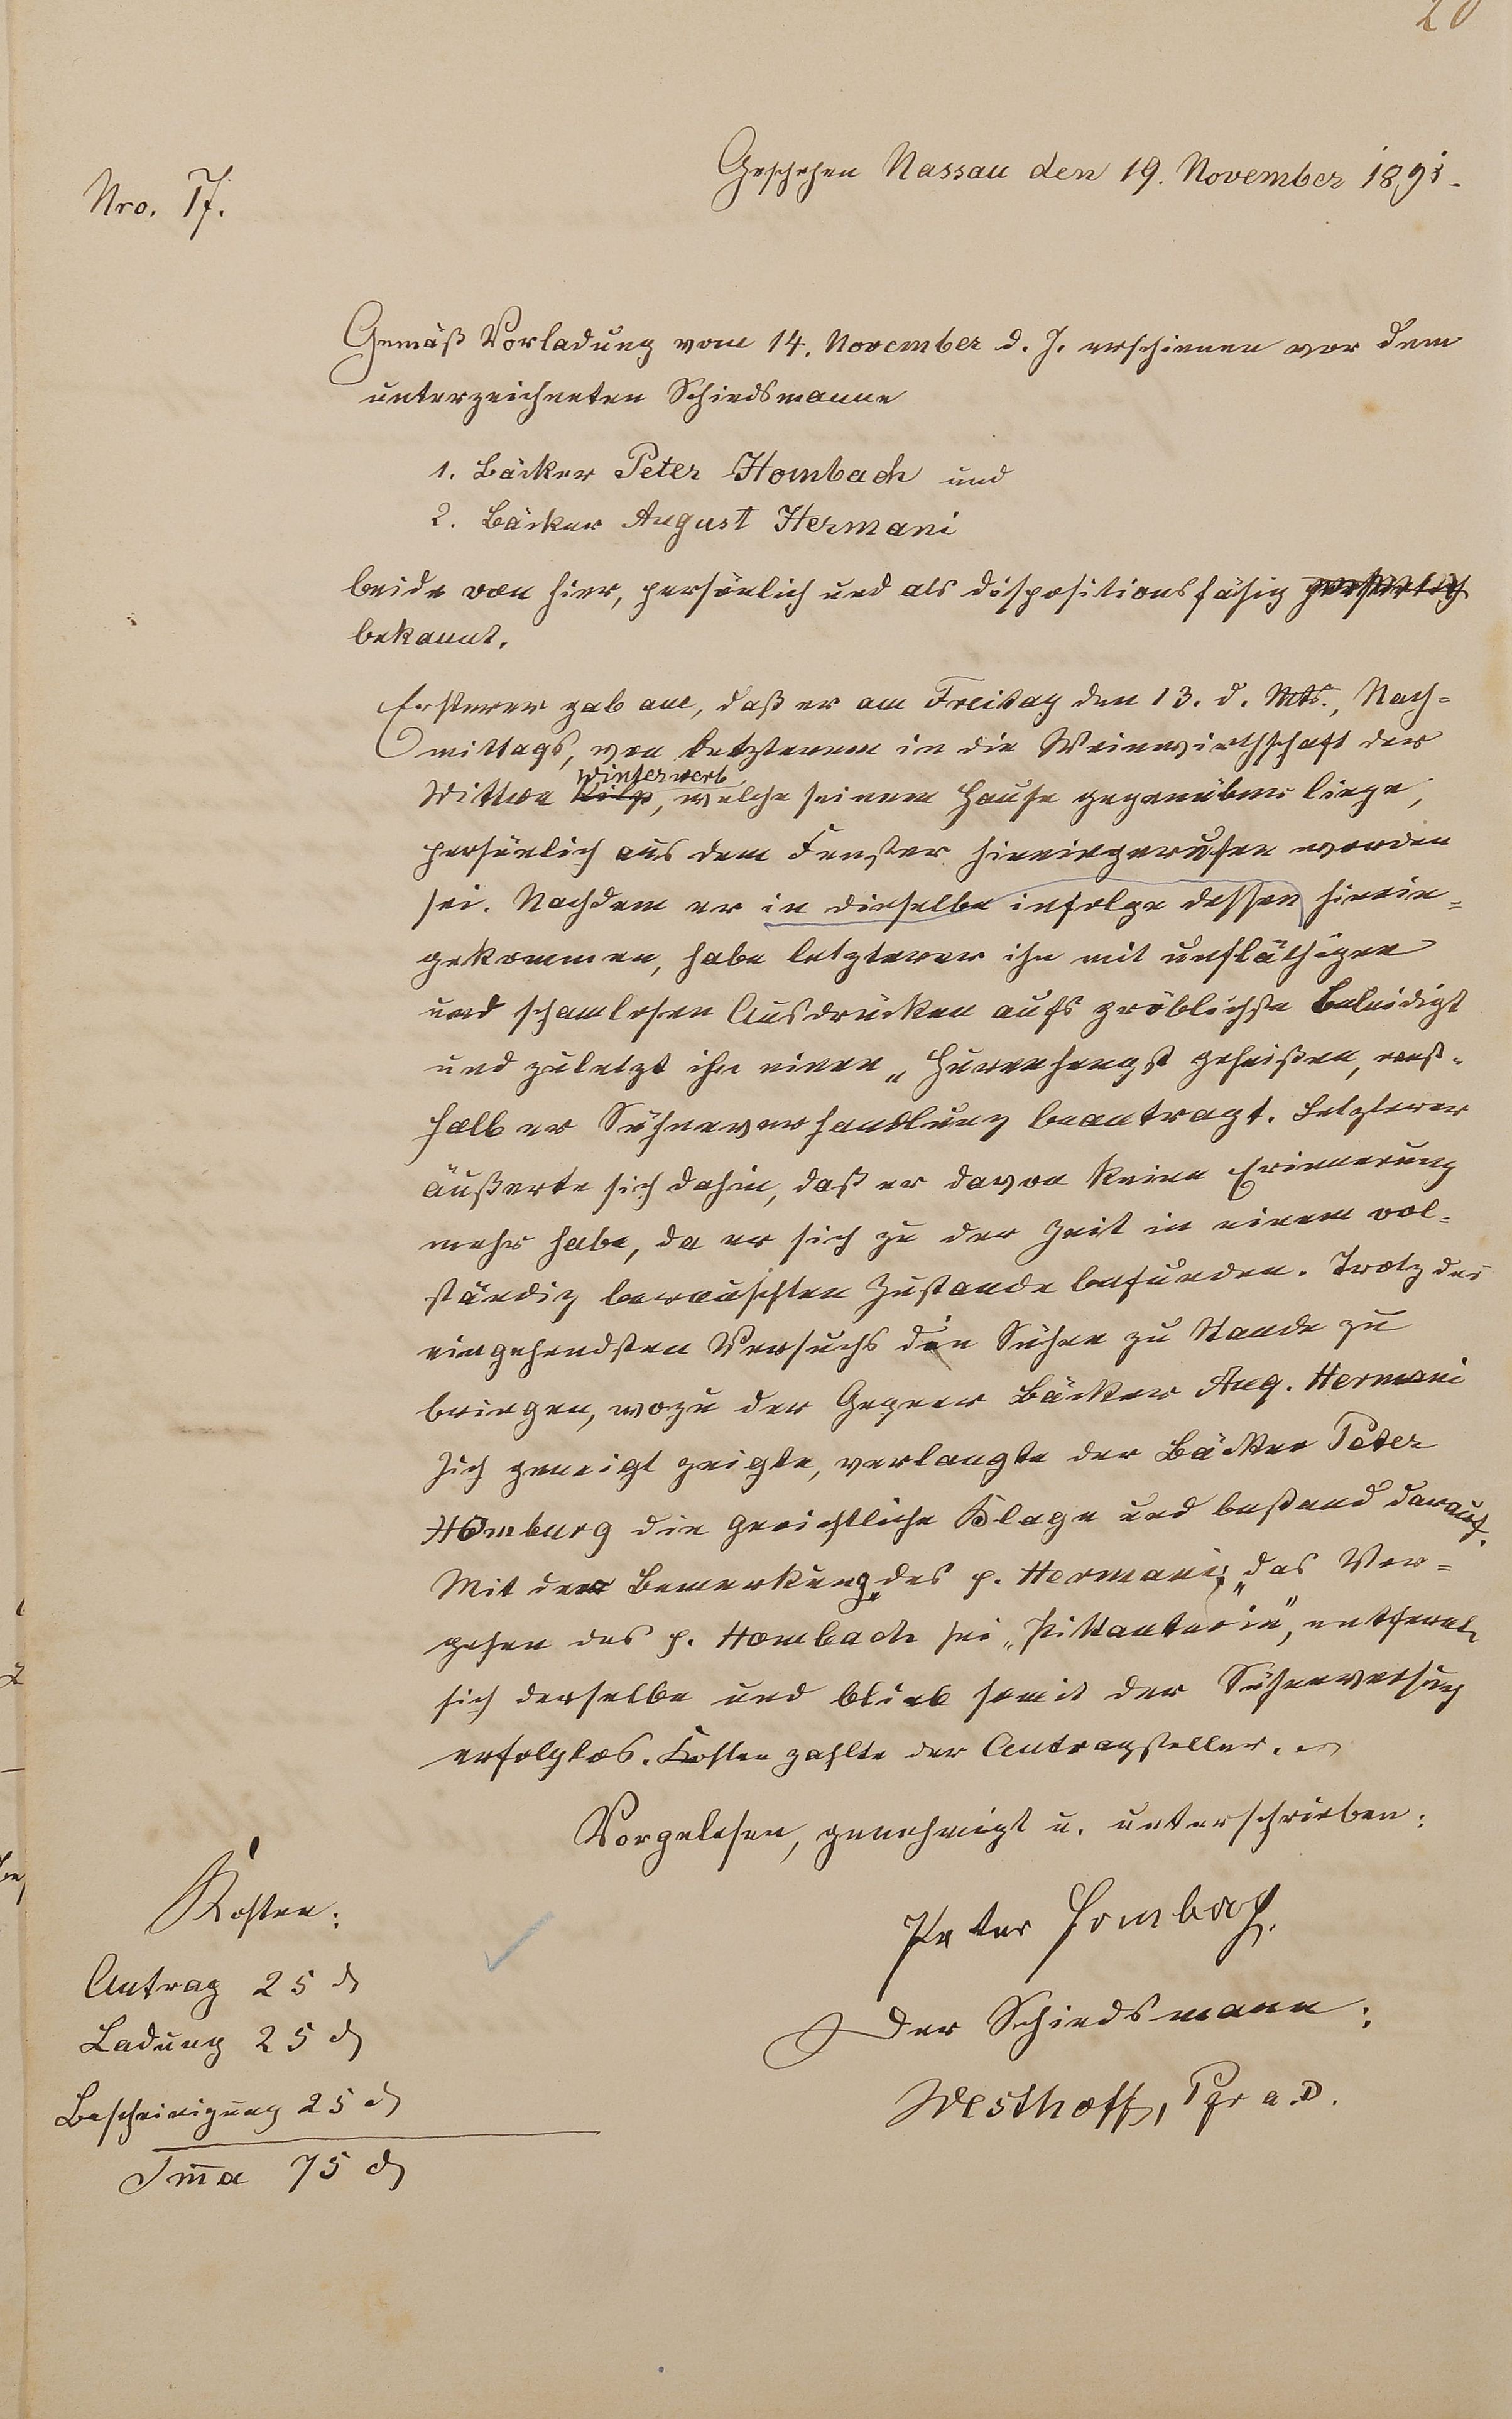 20
Nro. 17.
Geschehen Nassau den 19. November 1891.
Gemäß Vorladung vom 14. November d. J. erschienen vor dem
unterzeichneten Schiedsmanne
1. Bäcker Peter Hombach und
2. Bäcker August Hermani
beide von hier, persönlich und als dispositionsfähig
bekannt.
Ersterer gab an, daß er am Freitag den 13. d. Mts., Nach=
mittags, von letzterem in die Weinwirthschaft der
Winterwerb
Wittwe Kilp, welche seinem Hause gegenüber liege,
persönlich aus dem Fenster hineingerufen worden
sei. Nachdem er in dieselbe infolge dessen hinein=
gekommen, habe letzterer ihn mit unfläthigen
und schamlosen Ausdrücken aufs gröblichste beleidigt
und zuletzt ihn einen „Hurenhengst geheißen, weß=
halb er Sühneverhandlung beantragt. Letzterer
äußerte sich dahin, daß er davon keine Erinnerung
mehr habe, da er sich zu der Zeit in einem vol=
ständig berauschten Zustande befunden. Trotz des
eingehendsten Versuchs die Sühne zu Stande zu
bringen, wozu der Gegner Bäcker Aug. Hermani
sich geneigt zeigte, verlangte der Bäcker Peter
Homburg die gerichtliche Klage und bestand darauf.
Mit der Bemerkung des p. Hermani, „das Vor=
gehen des p. Hombach sei „Pikanterie", entfernte
sich derselbe und blieb somit der Sühneversuch
erfolglos. Kosten zahlte der Antragsteller.
Vorgelesen, genehmigt u. unterschrieben:
Peter Hombach.
Der Schiedsmann:
Westhoff, Pfr a.D.
Kosten:
Antrag 25 ₰
Ladung 25 ₰
Bescheinigung 25 ₰
Sm̄a 75 ₰